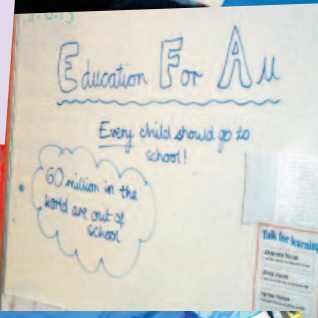 Education For All
Every child should go to
school!
60 million in the
world are out of
school
Talk for learning